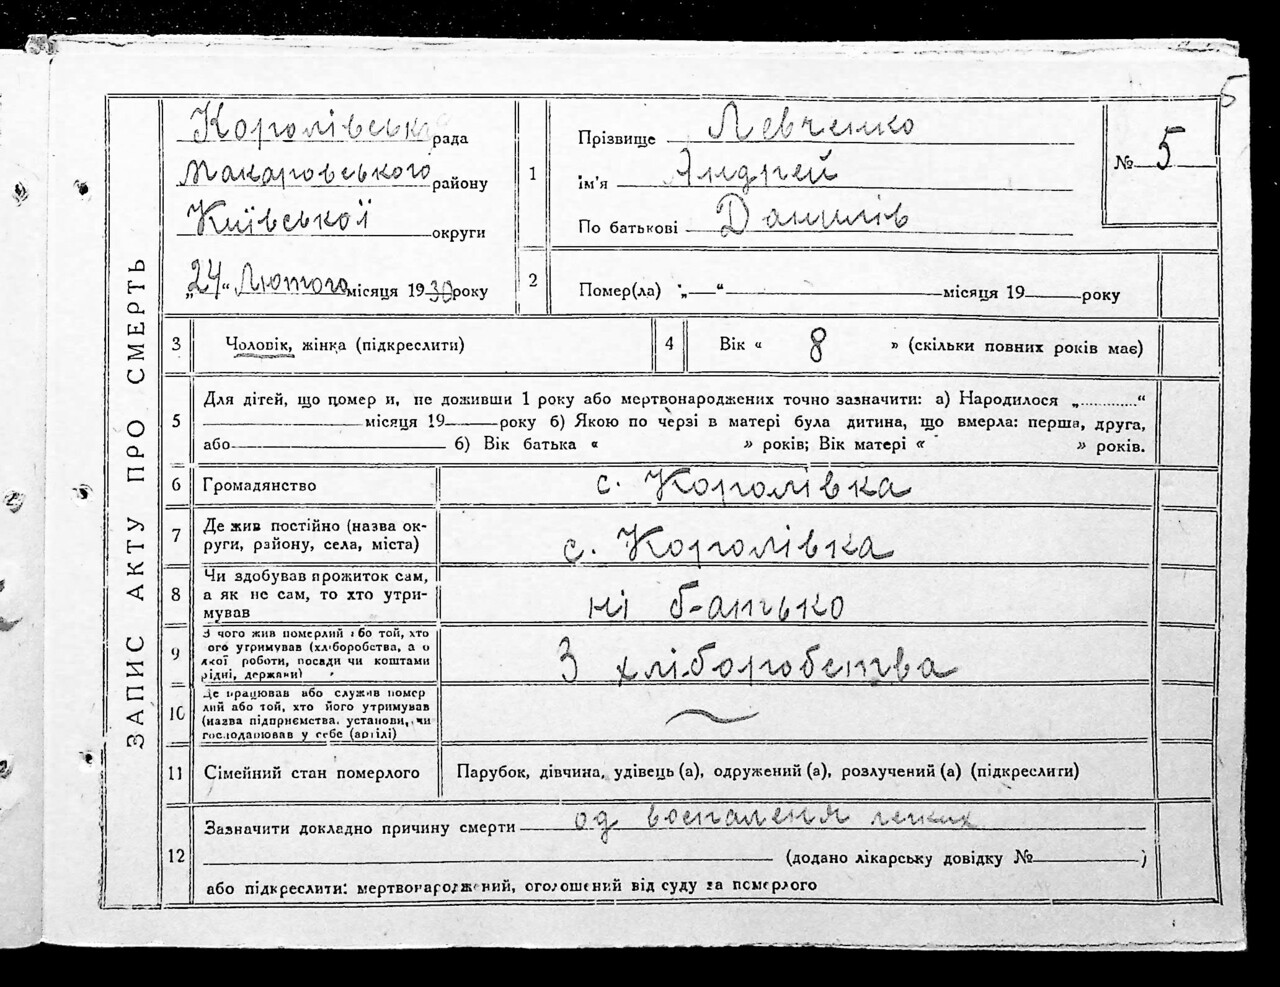 5
ЗАПИС АКТУ ПРО СМЕРТЬ
Королівська рада
Макаровського району
Київської округи
„24“ Лютого місяця 1930 року
1
Прізвище Левченко
ім'я Андрей
По батькові Данилів
№ 5
2
Помер(ла) „—“ місяця 19 року
3
Чоловік, жінка (підкреслити)
4
Вік « 8 » (скільки повних років має)
5
Для дітей, що помер и, не доживши 1 року або мертвонароджених точно зазначити: а) Народилося „............“
місяця 19 року б) Якою по черзі в матері була дитина, що вмерла: перша, друга,
або б) Вік батька « » років; Вік матері « » років.
6
Громадянство
с. Королівка
7
Де жив постійно (назва ок-
руги, району, села, міста)
с. Королівка
8
Чи здобував прожиток сам,
а як не сам, то хто утри-
мував
ні батько
9
З чого жив померлий або той, хто
ого утримував (хліборобства, а о
якої роботи, посади чи коштами
рідні, держави)
З хліборобства
10
Де працював або служив помер
лий або той, хто його утримував
(назва підприємства, установи, чи
господарював у себе (артілі)
11
Сімейний стан померлого
Парубок, дівчина, удівець (а), одружений (а), розлучений (а) (підкреслити)
12
Зазначити докладно причину смерти од воспаления легких
(додано лікарську довідку № )
або підкреслити: мертвонароджений, оголошений від суду за померлого